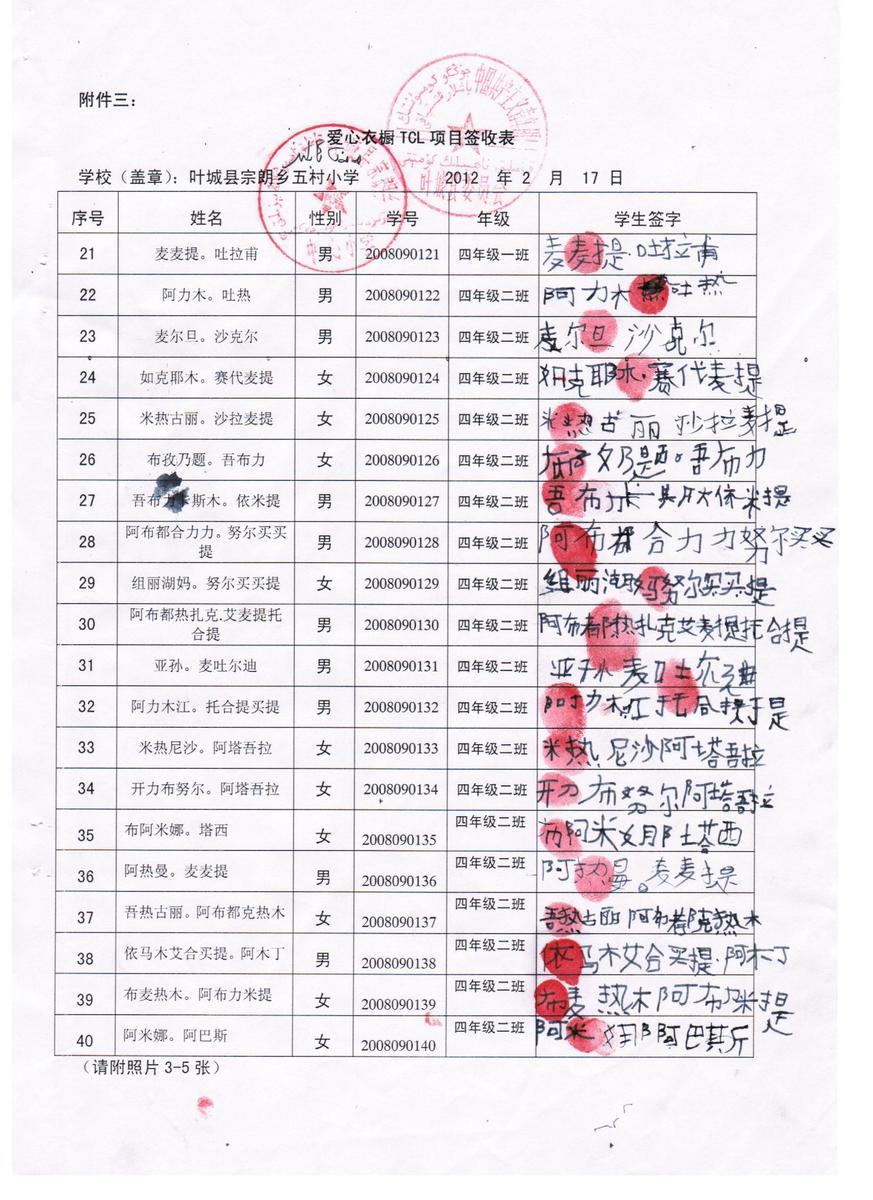 附件三：
爱心衣橱TCL项目签收表
学校（盖章）：叶城县宗朗乡五村小学 2012 年 2 月 17 日
序号 姓名 性别 学号 年级 学生签字
21 麦麦提。吐拉甫 男 2008090121 四年级一班 麦麦提·吐拉甫
22 阿力木。吐热 男 2008090122 四年级二班 阿力木 吐热
23 麦尔旦。沙克尔 男 2008090123 四年级二班 麦尔旦 沙克尔
24 如克耶木。赛代麦提 女 2008090124 四年级二班 如克耶木·赛代麦提
25 米热古丽。沙拉麦提 女 2008090125 四年级二班 米热古丽 沙拉麦提
26 布孜乃题。吾布力 女 2008090126 四年级二班 布孜乃题。吾布力
27 吾布力 斯木。依米提 男 2008090127 四年级二班 吾布 依米提
28 阿布都合力力。努尔买买
提 男 2008090128 四年级二班 阿布都合力力努尔买买
29 组丽湖妈。努尔买买提 女 2008090129 四年级二班 组丽湖妈努尔买买提
30 阿布都热扎克.艾麦提托
合提 男 2008090130 四年级二班 阿布都热扎克艾麦提托合提
31 亚孙。麦吐尔迪 男 2008090131 四年级二班 亚孙 麦吐尔
32 阿力木江。托合提买提 男 2008090132 四年级二班 阿力木江托合提
33 米热尼沙。阿塔吾拉 女 2008090133 四年级二班 米热尼沙阿塔吾拉
34 开力布努尔。阿塔吾拉 女 2008090134 四年级二班 开力布努尔阿塔吾拉
35 布阿米娜。塔西 女 2008090135 四年级二班 布阿米娜塔西
36 阿热曼。麦麦提 男 2008090136 四年级二班 阿热曼。麦麦提
37 吾热古丽。阿布都克热木 女 2008090137 四年级二班 吾热古丽阿布都克热木
38 依马木艾合买提。阿木丁 男 2008090138 四年级二班 依马木艾合买提·阿木丁
39 布麦热木。阿布力米提 女 2008090139 四年级二班 布麦热木阿布力米提
40 阿米娜。阿巴斯 女 2008090140 四年级二班 阿米娜阿巴斯
（请附照片3-5张）